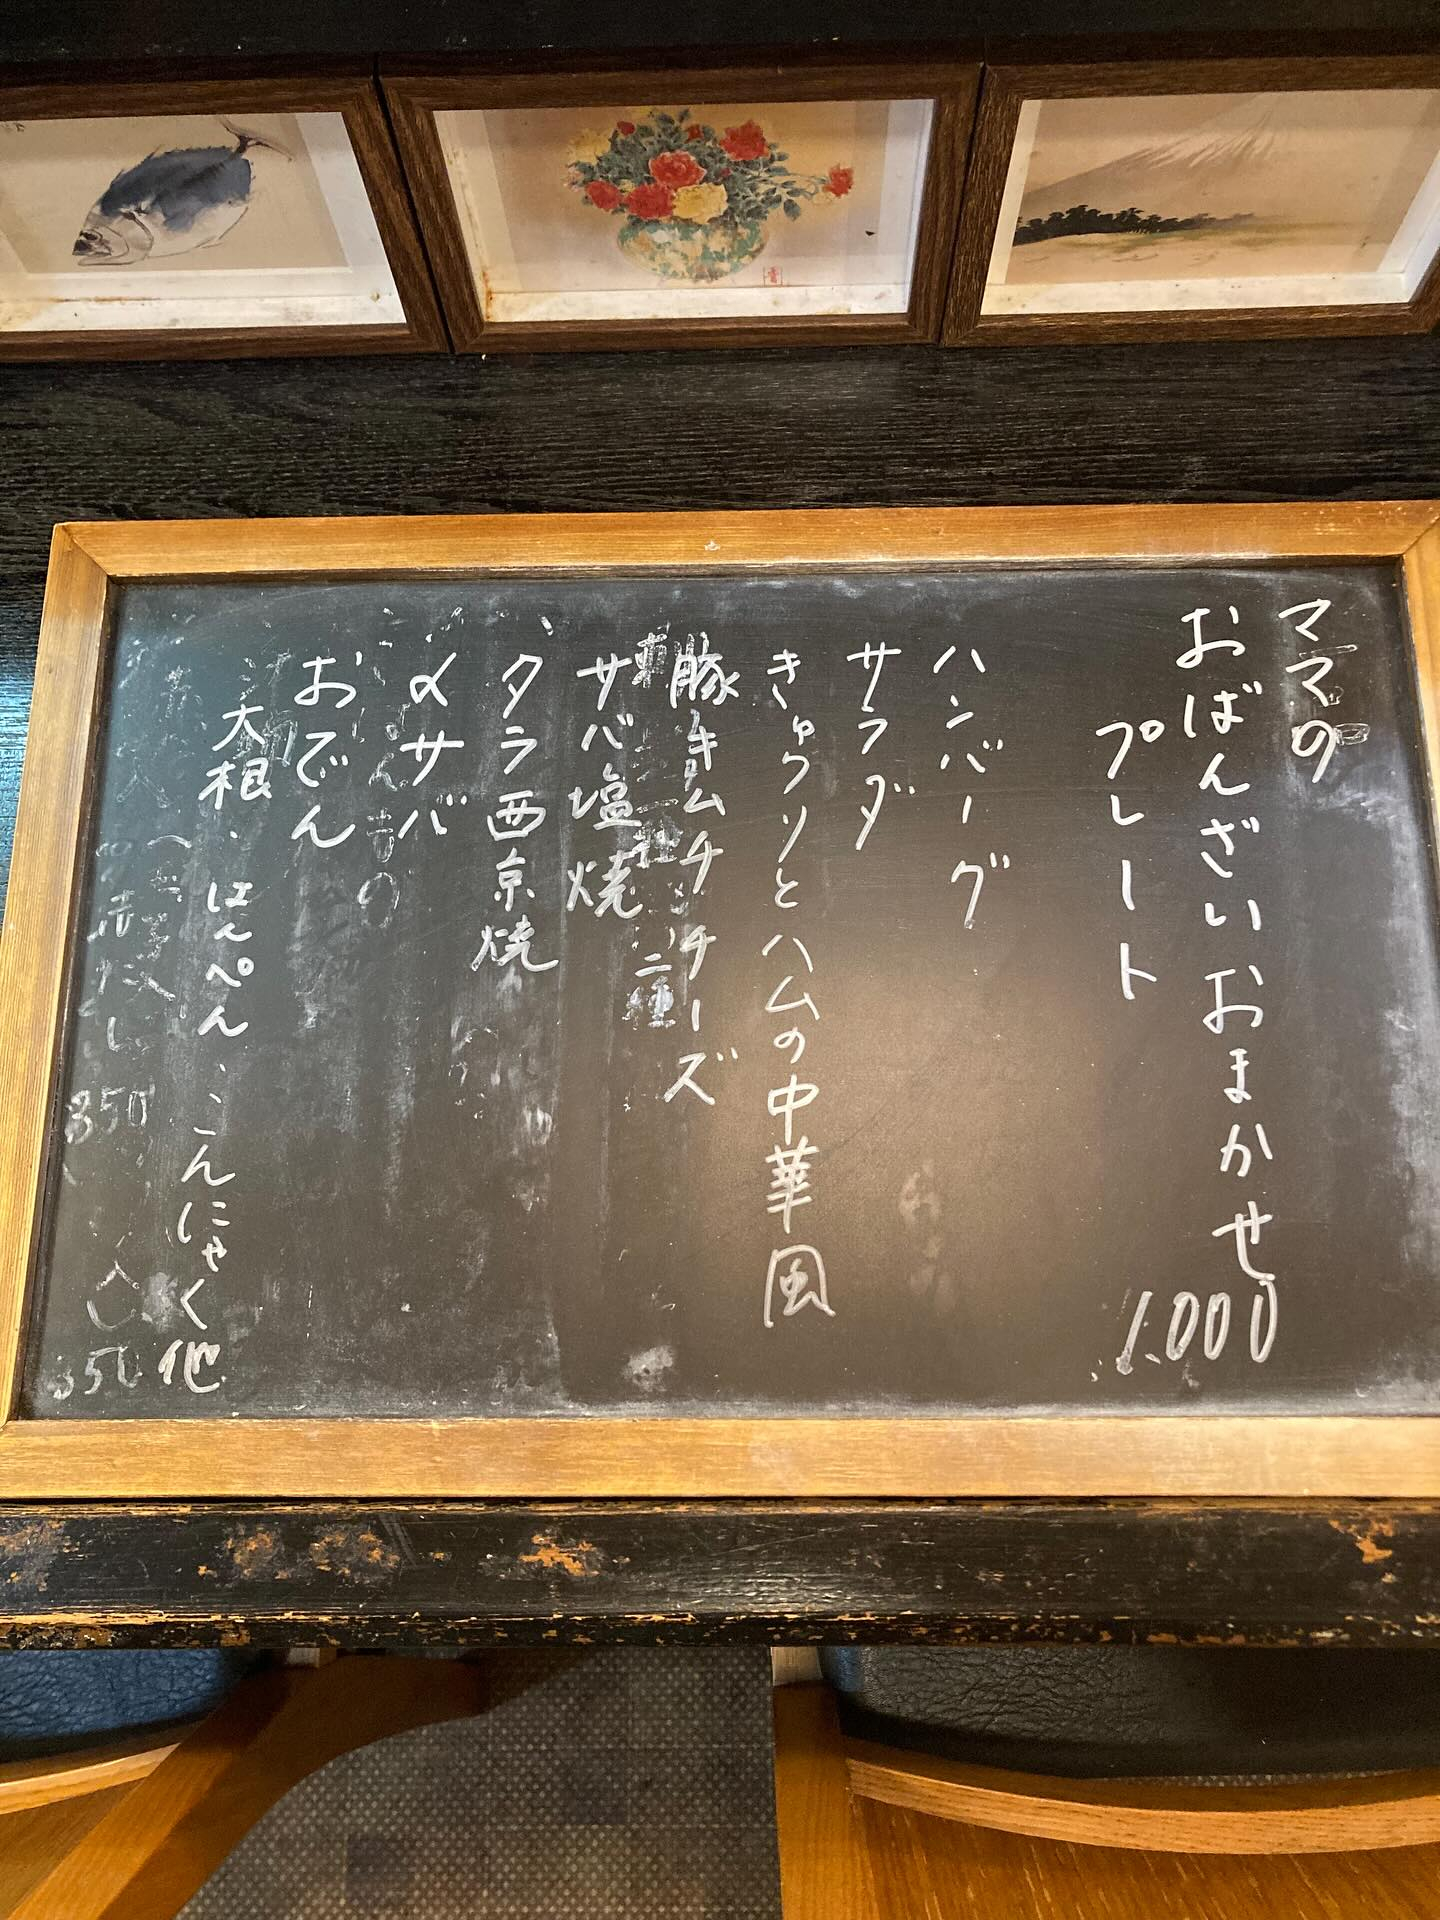 ママの
おばんざいおまかせ
プレート 1.000
ハンバーグ
サラダ
きゅうりとハムの中華風
豚キムチチーズ
サバ塩焼
タラ西京焼
〆サバ
おでん
大根、はんぺん、こんにゃく他